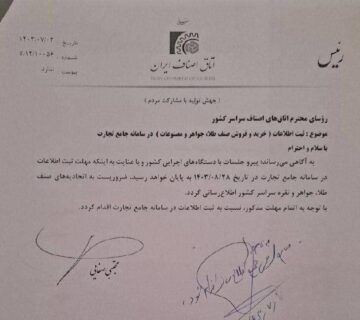 رئیس
تاریخ : ۱۴۰۳/۰۷/۰۲
شماره : ۵/۱۴/۱۰۰۵۶
پیوست : ندارد
اتاق اصناف ایران
( جهش تولید با مشارکت مردم )
رؤسای محترم اتاق‌های اصناف سراسر کشور
موضوع : ثبت اطلاعات ( خرید و فروش صنف طلا، جواهر و مصنوعات ) در سامانه جامع تجارت
با سلام و احترام
به آگاهی می‌رساند؛ پیرو جلسات با دستگاه‌های اجرایی کشور و با عنایت به اینکه مهلت ثبت اطلاعات
در سامانه جامع تجارت در تاریخ ۱۴۰۳/۰۸/۲۸ به پایان خواهد رسید، ضروریست به اتحادیه‌های صنف
طلا، جواهر و نقره سراسر کشور اطلاع‌رسانی گردد.
با توجه به اتمام مهلت مذکور، نسبت به ثبت اطلاعات در سامانه جامع تجارت اقدام گردد.
مجتبی صفایی